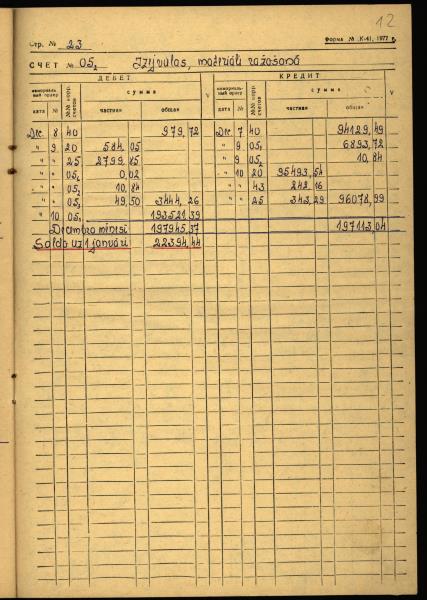 12
Стр. № 23
Форма № К-41, 1977 г.
СЧЕТ № 05₂ Izejvielas, materiāli ražošanā
ДЕБЕТ КРЕДИТ
мемориаль-ный ордер №№ корр. счетов сумма V мемориаль-ный ордер №№ корр. счетов сумма V
дата № частная общая дата № частная общая
Dec. 8 40 979,72 Dec. 7 40 94129,49
" 9 20 584,05 " 9 05₁ 6893,72
" " 25 2799,85 " 9 05₂ 10,84
" " 05₁ 0,02 " 10 20 95493,54
" " 05₂ 10,84 " " 43 242,16
" " 05₁ 49,50 3444,26 " " 25 343,29 96078,99
" 10 05₁ 193521,39
Decembra mēnesī 197945,37 197113,04
Saldo uz 1 janvāri 22394,44